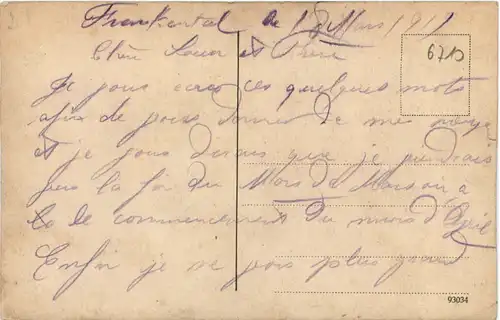 Frankental le 1 Mars 1911
Chère Soeur et Frère
6713
Je vous ecris ces quelques mots
afin de vous donner de mes
et je vous dirais que je
vers la fin du Mois de Mars ou a
le commencement du mois d'
Enfin je ne vois plus
93034